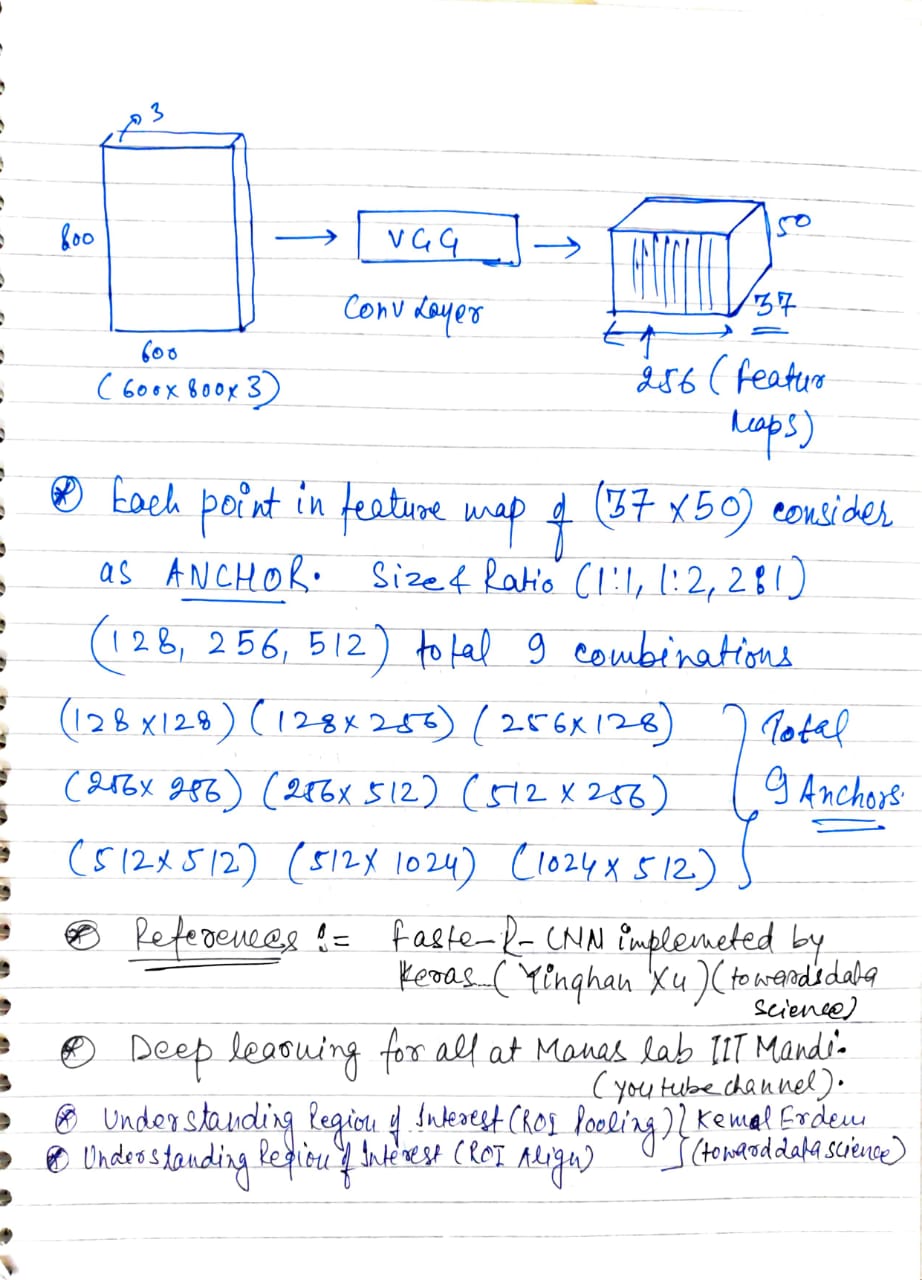 3
800
VGG
50
Conv Layer
37
600
(600 x 800 x 3)
256 (featur
Maps)
⊛ Each point in feature map of (37 x 50) consider
as ANCHOR. Size & Ratio (1:1, 1:2, 2:1)
(128, 256, 512) total 9 combinations
(128 x 128) (128 x 256) (256 x 128)
Total
(256 x 256) (256 x 512) (512 x 256)
9 Anchors.
(512 x 512) (512 x 1024) (1024 x 512)
⊛ References := Faste-R-CNN implemeted by
Keras (Yinghan Xu) (towards data
science)
⊛ Deep learning for all at Manas lab IIT Mandi.
(youtube channel).
⊛ Understanding Region of Interest (ROI Pooling) } Kemal Erdem
⊛ Understanding Region of Interest (ROI Align) (toward data science)